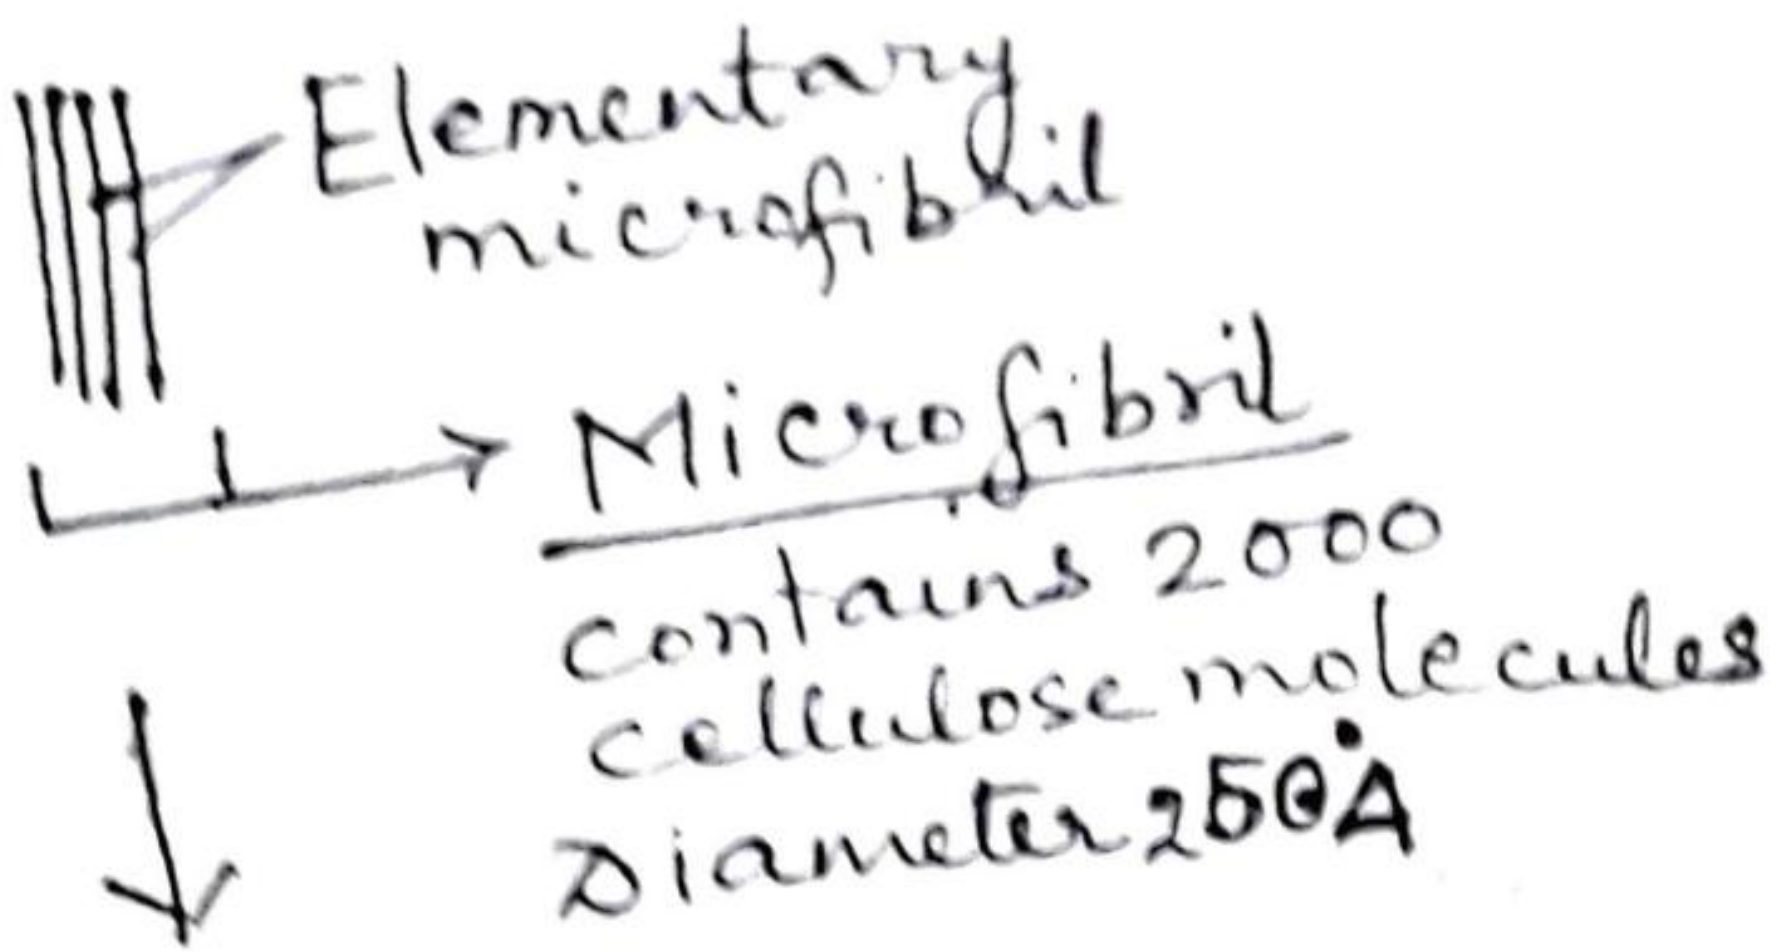 Elementary
microfibril
Microfibril
contains 2000
cellulose molecules
Diameter 250Å